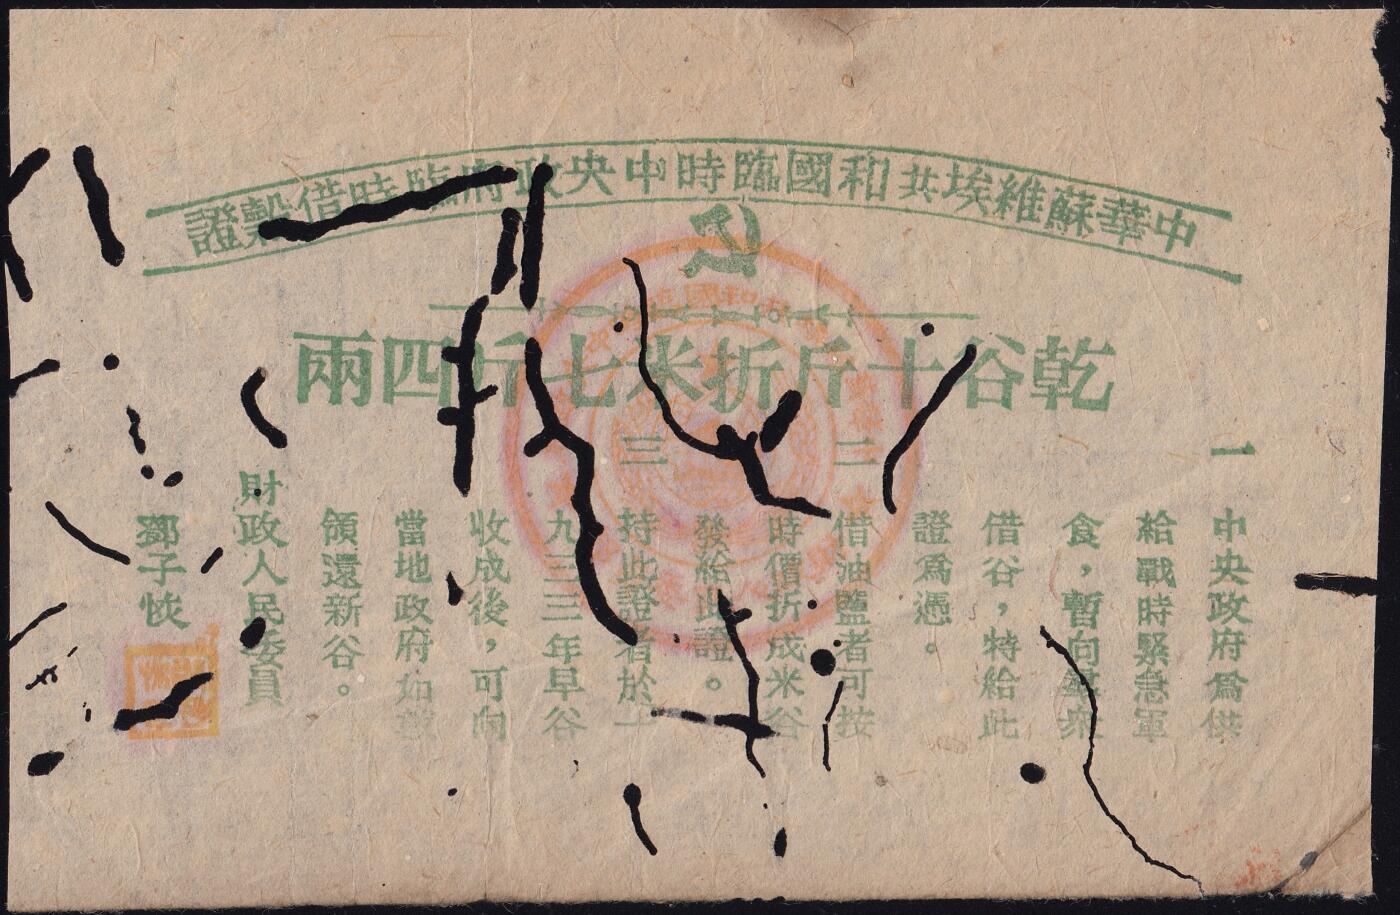 中華蘇維埃共和國臨時中央政府臨時借穀證
乾谷十斤折米七斤四兩
一
中央政府爲供
給戰時緊急軍
食，暫向羣衆
借谷，特給此
證爲憑。
二
借油鹽者可按
時價折成米谷
發給此證。
三
持此證者於一
九三三年早谷
收成後，可向
當地政府如數
領還新谷。
財政人民委員
鄧子恢